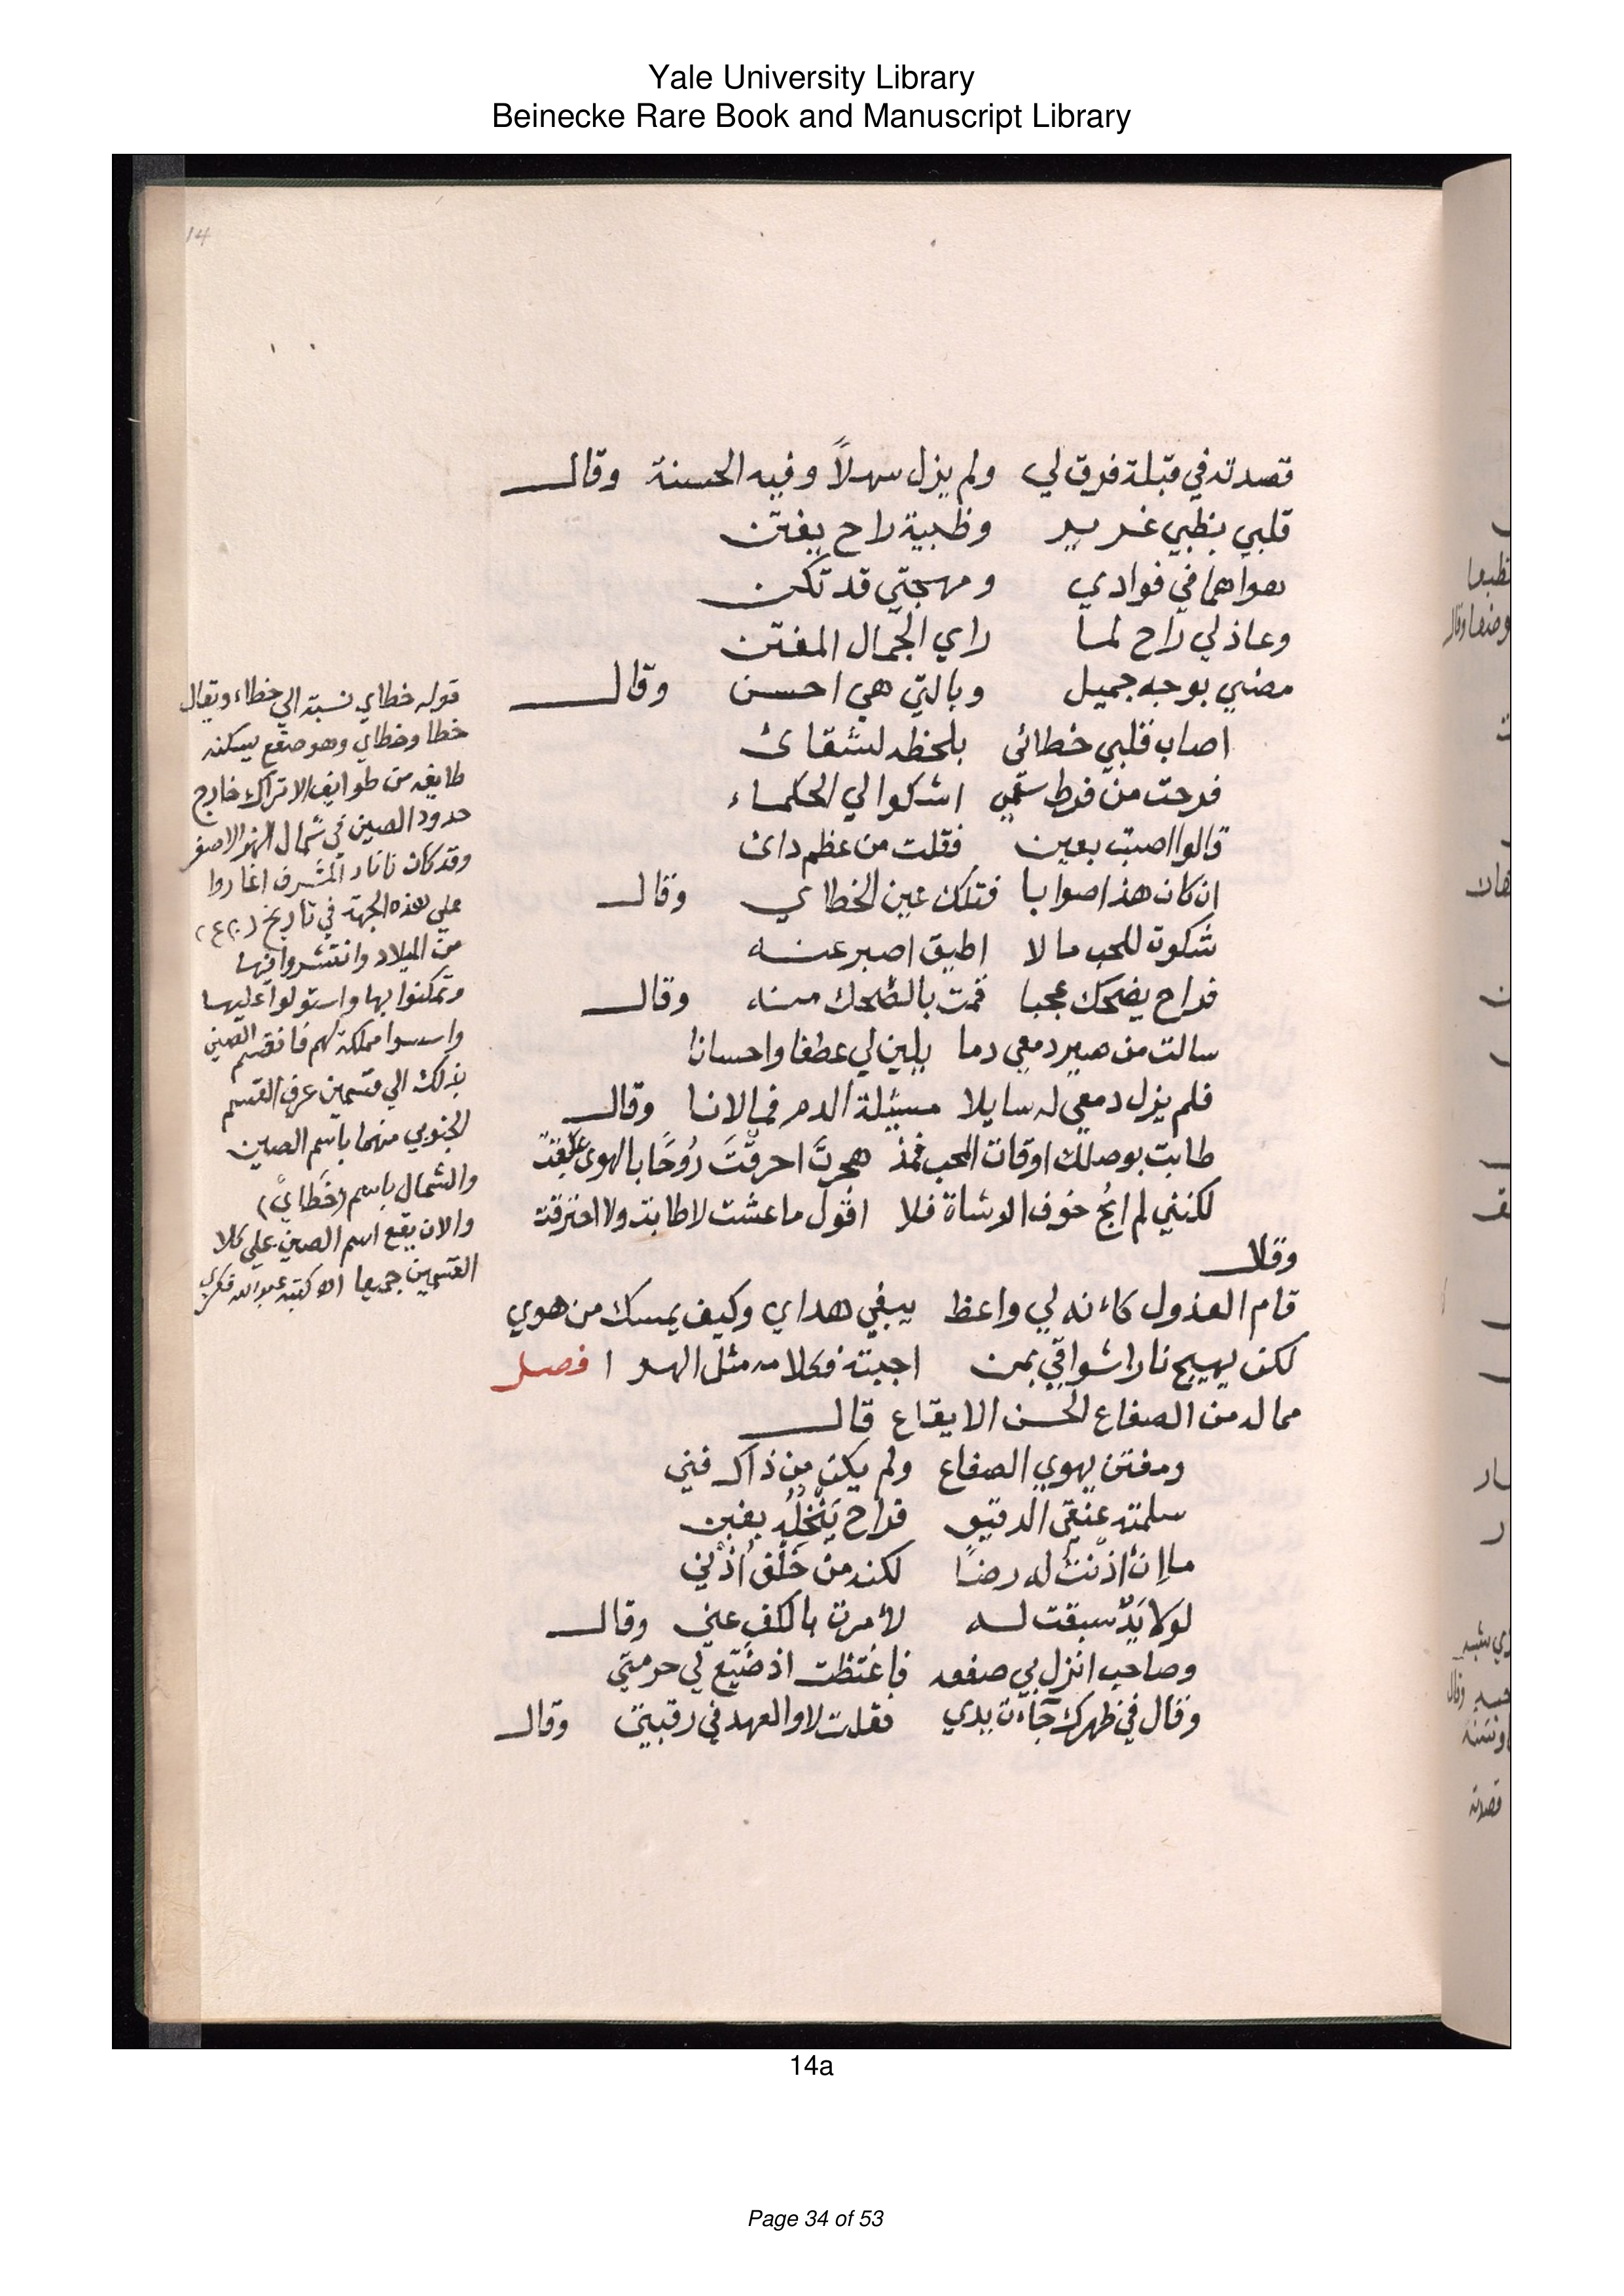 Yale University Library
Beinecke Rare Book and Manuscript Library
14
قصدته في قبلة فرق لي ولم يزل سهلاً وفيه الحسنة وقال
قلبي بظبي غرير وظبية راح يفتن
هواهما في فوادي ومهجتي قد تمكن
وعاذلي راح لما راي الجمال المفتن
مضني بوجه جميل وبالتي هي احسن وقال
اصاب قلبي خطائى بلحظه لشقائ
فرحت من فرط سقمي اشكوا لي الحكماء
قالوا اصبت بعين فقلت من عظم دائ
ان كان هذا صوابا فتلك عين الخطاي وقال
شكوت للحب ما لا اطيق اصبر عنه
فراح يضحك عجبا قمت بالضحك منه وقال
سالت من صير دمعي دما يلين لي عطفا واحسانا
فلم يزل دمعي له سايلا مسيئلة الدمر فما لانا وقال
طابت بوصلك اوقات المحب فمذ هجرتَ احرقتَ رُوحًا بالهوى علقت
لكنني لم ابُح خوف الوشاة فلا اقول ما عشت لا طابت ولا احترقت
وقال
قام العذول كاءنه لي واعظ يبغي هداي وكيف يمسك من هوي
لكن يهيج نار اشواقي بمن اجبته فكلامه مثل الهوا فصل
مما له من الصفاع الحسن الايقاع قال
ومفتن يهوي الصفاع ولم يكن من ذاك فني
سلمته عنقي الدقيق فراح يَنْخُلُه بغبن
ما إن اذنتُ له رضًا لكنه من خلف أذْني
لولا يَدٌ سبقت له لأمرت بالكف عني وقال
وصاحب انزل بي صفعه فاغتظت اذ ضيّع لي حرمتي
وقال في ظهرك جآءت يدي فقلت لا والعهد في رقبتي وقال
قوله خطاي نسبة الي خطاء ويقال
خطا وخطاي وهو صقع يسكنه
طايفه من طوايف الاتراك خارج
حدود الصين في شمال النهر الاصفر
وقد كان تاتار المشرف اغاروا
علي هذه الجهة في تاريخ
من الميلاد وانتشروا فيها
وتمكنوا بها واستولوا عليها
واسسوا مملكة لهم فانقسم الصين
بذلك الي قسمين عرف القسم
الجنوبي منهما باسم الصين
والشمال باسم (خَطاي)
والان يقع اسم الصين علي كلا
القسمين جميعا اه كتبه عبدالله فكري
14a
Page 34 of 53